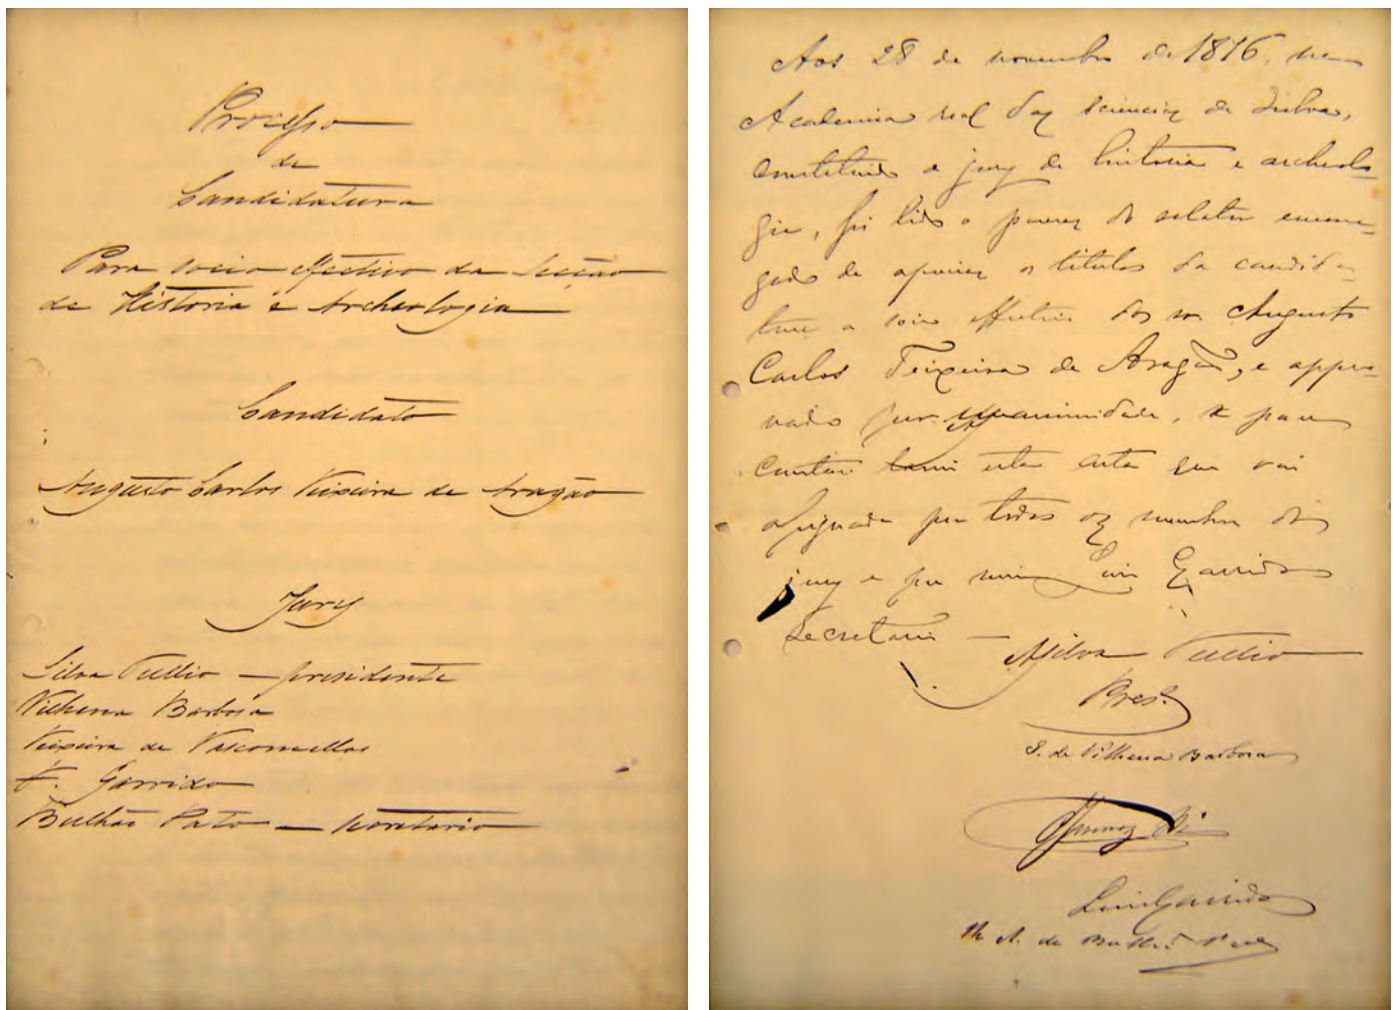 Processo
de
Candidatura
Para socio effectivo da Secção
de Historia e Archeologia
Candidato
Augusto Carlos Teixeira de Aragão
Jury
Silva Tullio — presidente
Vilhena Barbosa
Teixeira de Vasconcellos
Garrido
Bulhão Pato — secretario
Aos 28 de novembro de 1876, na
Academia real das sciencias de Lisboa,
constituido o jury de historia e archeolo-
gia, foi lido o parecer do relator encarre-
gado de apreciar os titulos da candida-
tura a socio effectivo do sr. Augusto
Carlos Teixeira de Aragão, e appro-
vado por unanimidade, e para
constar esta acta que vai
assignada por todos os membros do
jury e por mim Luis Garrido
secretario —
Silva Tullio
Pres.
I. de Vilhena Barbosa
Luis Garrido
de Bulhão Pato